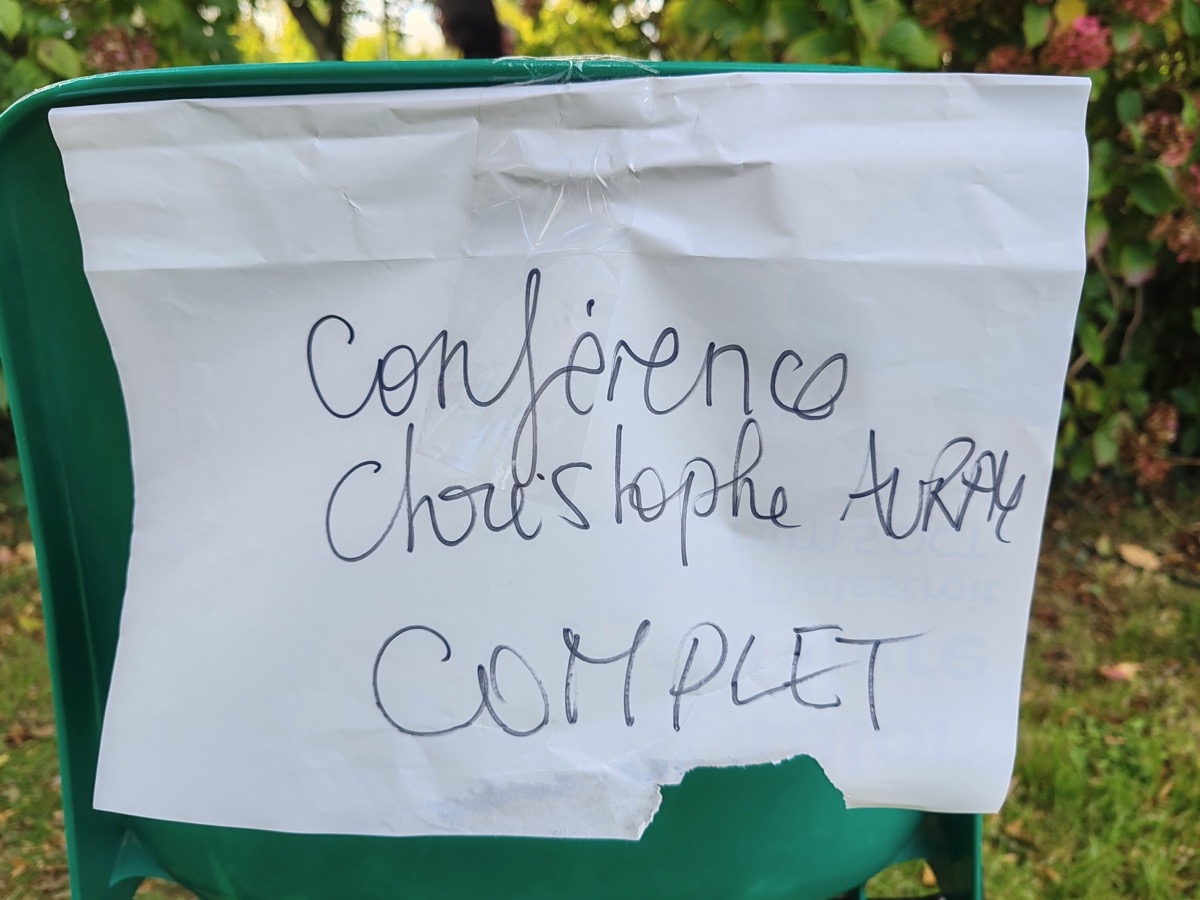 Conférence
Christophe AURAY
COMPLET